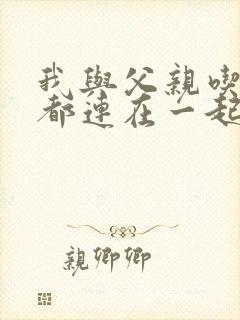 我與父親喫
都連在一起
親卿卿